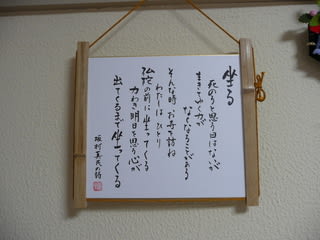 坐る
死のうと思う日はないが
生きてゆく力が
なくなることがある
そんな時お寺を訪ね
わたしはひとり
仏陀の前に坐ってくる
力わき明日を思う心が
出てくるまで坐ってくる
坂村真民の詩